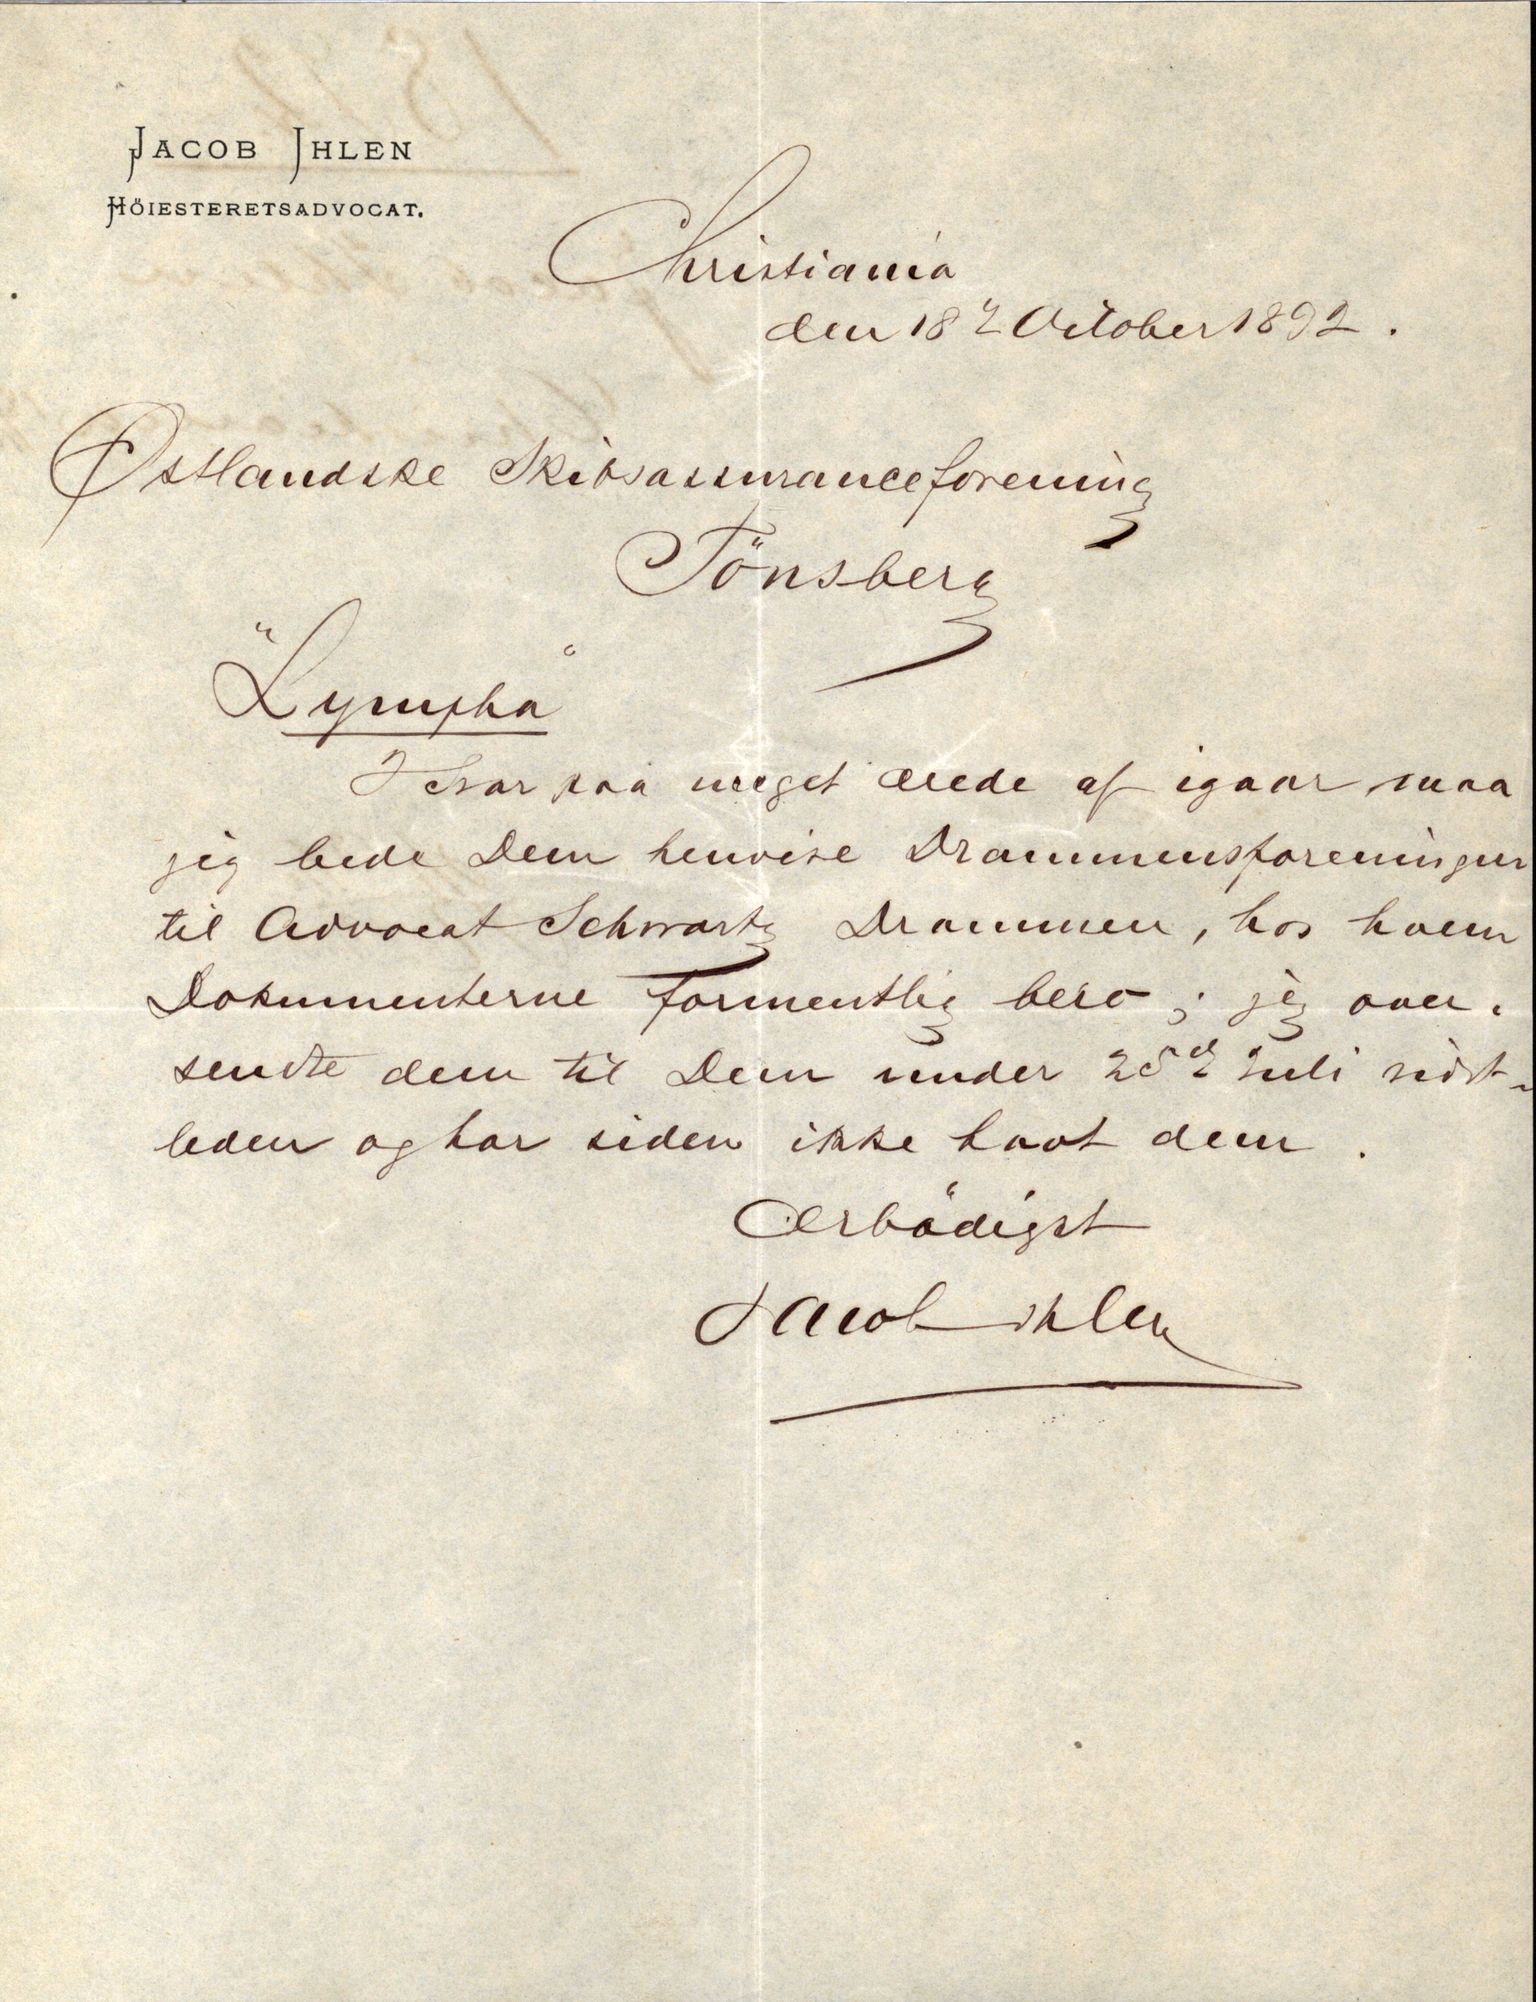 JACOB IHLEN
HÖIESTERETSADVOCAT.
Christiania
den 18 October 1892.
Østlandske Skibsassuranceforening
Tönsberg
"Lympha"
I Svar paa meget ærede af igaar maa
jig bede Dem henvise Drammensforeningen
til Advocat Schwartz Drammen, hos hvem
Dokumenterne formentlig bero; jeg over-
sendte dem til Dem under 25de Juli sidst-
leden og har siden ikke havt dem.
Ærbödigst
Jacob Ihlen